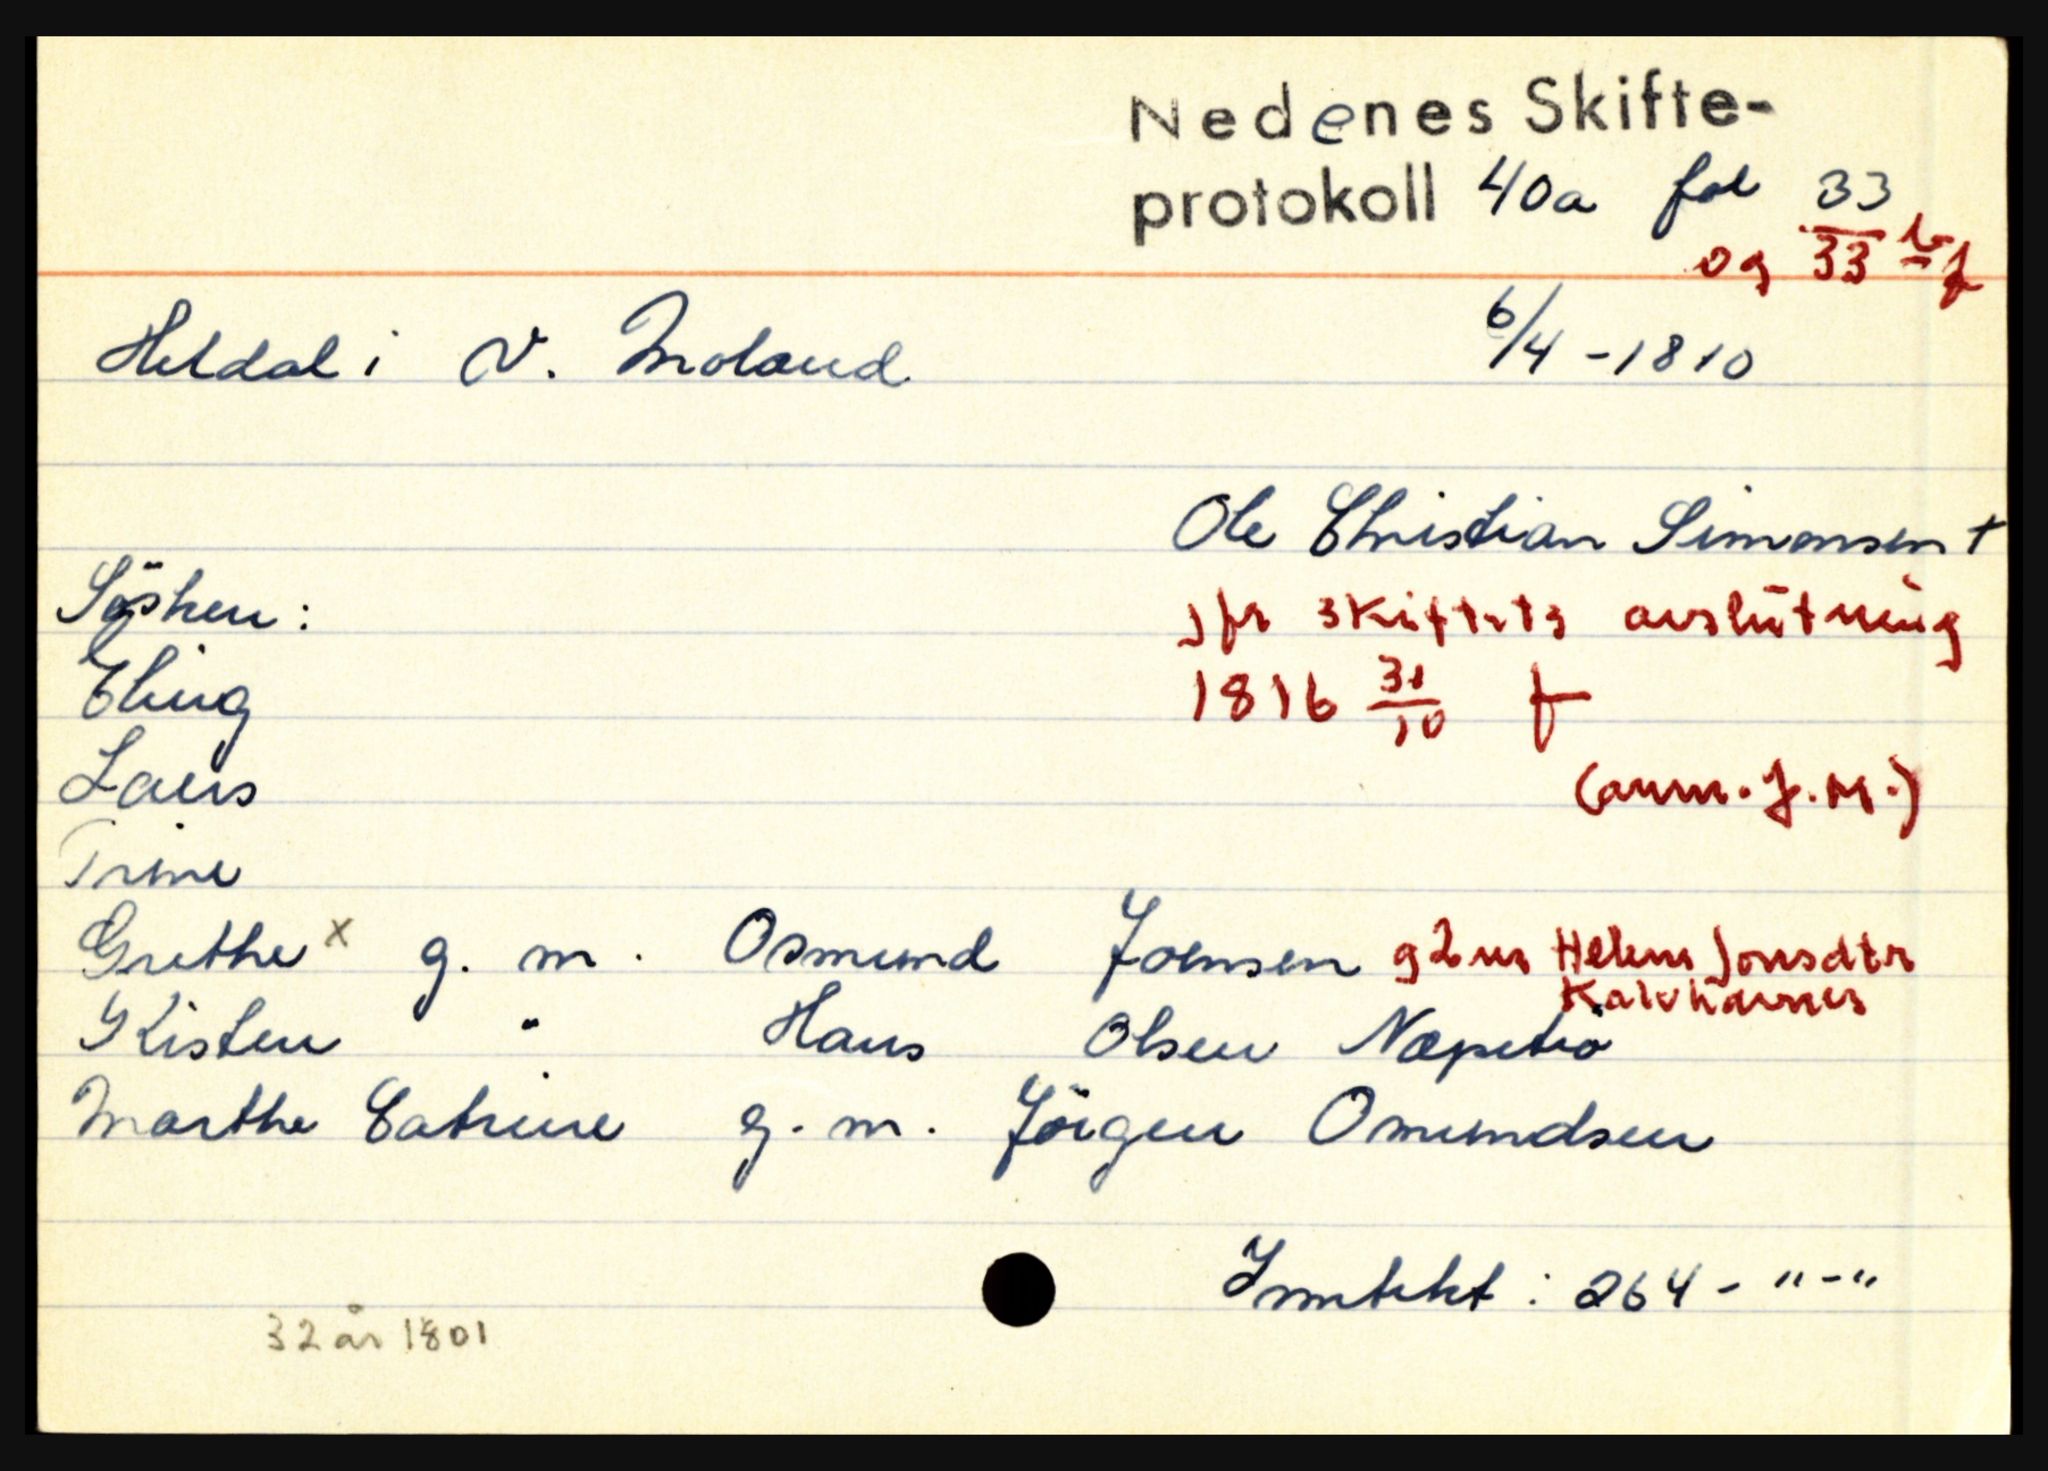 Nedenes Skifte-
protokoll 40a fol 33
og 33 b f
Heldal i V. Moland 6/4 - 1810
Ole Christian Simonsen +
Søsken: jfr skiftets avslutning
Eling 1816 31/10 f
Laurs (anm. J.M.)
Trine
Grethe x g. m. Osmund Joensen g2m Helene Jonsdtr
Kalvhavnes
Kisten " Hans Olsen Næpetrø
Marthe Catrine g. m. Jörgen Omundsen
Inntekt: 264 - " - "
32 år 1801